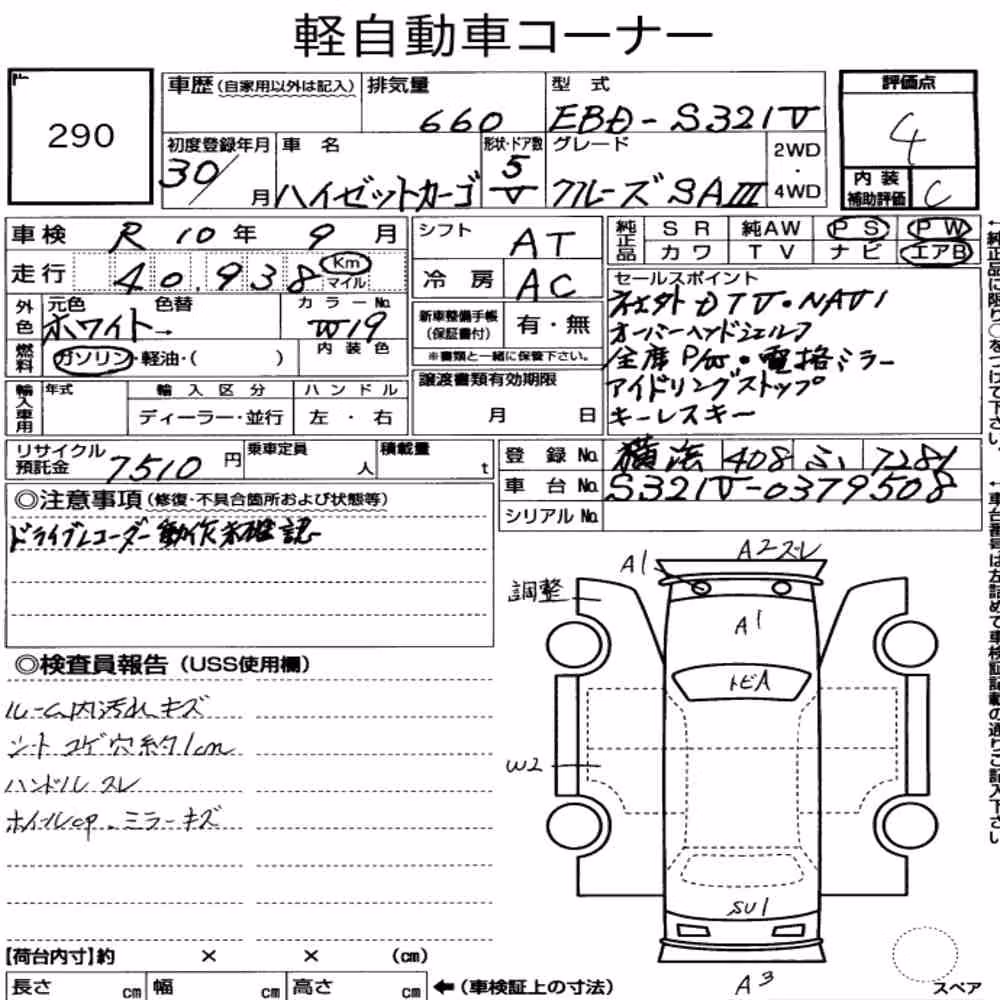 軽自動車コーナー
290
車歴(自家用以外は記入) 排気量 660 型式 EBD-S321V
評価点 4
内装補助評価 C
初度登録年月 30/ 月 車名 ハイゼットカーゴ 形状・ドア数 5 V グレード クルーズSAIII 2WD・4WD
車検 R 10年 9月
走行 40,938 Km マイル
外色 元色 ホワイト 色替 → カラーNo. W19
燃料 ガソリン・軽油・( ) 内装色
輸入車用 年式 輸入区分 ディーラー・並行 ハンドル 左・右
シフト AT
冷房 AC
新車整備手帳(保証書付) 有・無
※書類と一緒に保管下さい。
譲渡書類有効期限 月 日
純正品 SR 純AW PS PW
カワ TV ナビ エアB
セールスポイント
オーバーヘッドシェルフ
全席P/W・電格ミラー
アイドリングストップ
キーレスキー
←純正品に限り○をつけて下さい。
リサイクル預託金 7510円 乗車定員 人 積載量 t
登録No. 横浜 408 ふ 7281
車台No. S321V-0379508
シリアルNo.
←車台番号は左詰めで車検証記載の通りご記入下さい
◎注意事項(修復・不具合箇所および状態等)
ドライブレコーダー動作未確認
◎検査員報告(USS使用欄)
ルーム内汚れキズ
シートコゲ穴約1cm
ハンドルスレ
ホイルcp、ミラーキズ
A1 A2ズレ
調整
A1
トビA
W2
SU1
A3
スペア
[荷台内寸]約 × × (cm)
長さ cm 幅 cm 高さ cm ←(車検証上の寸法)